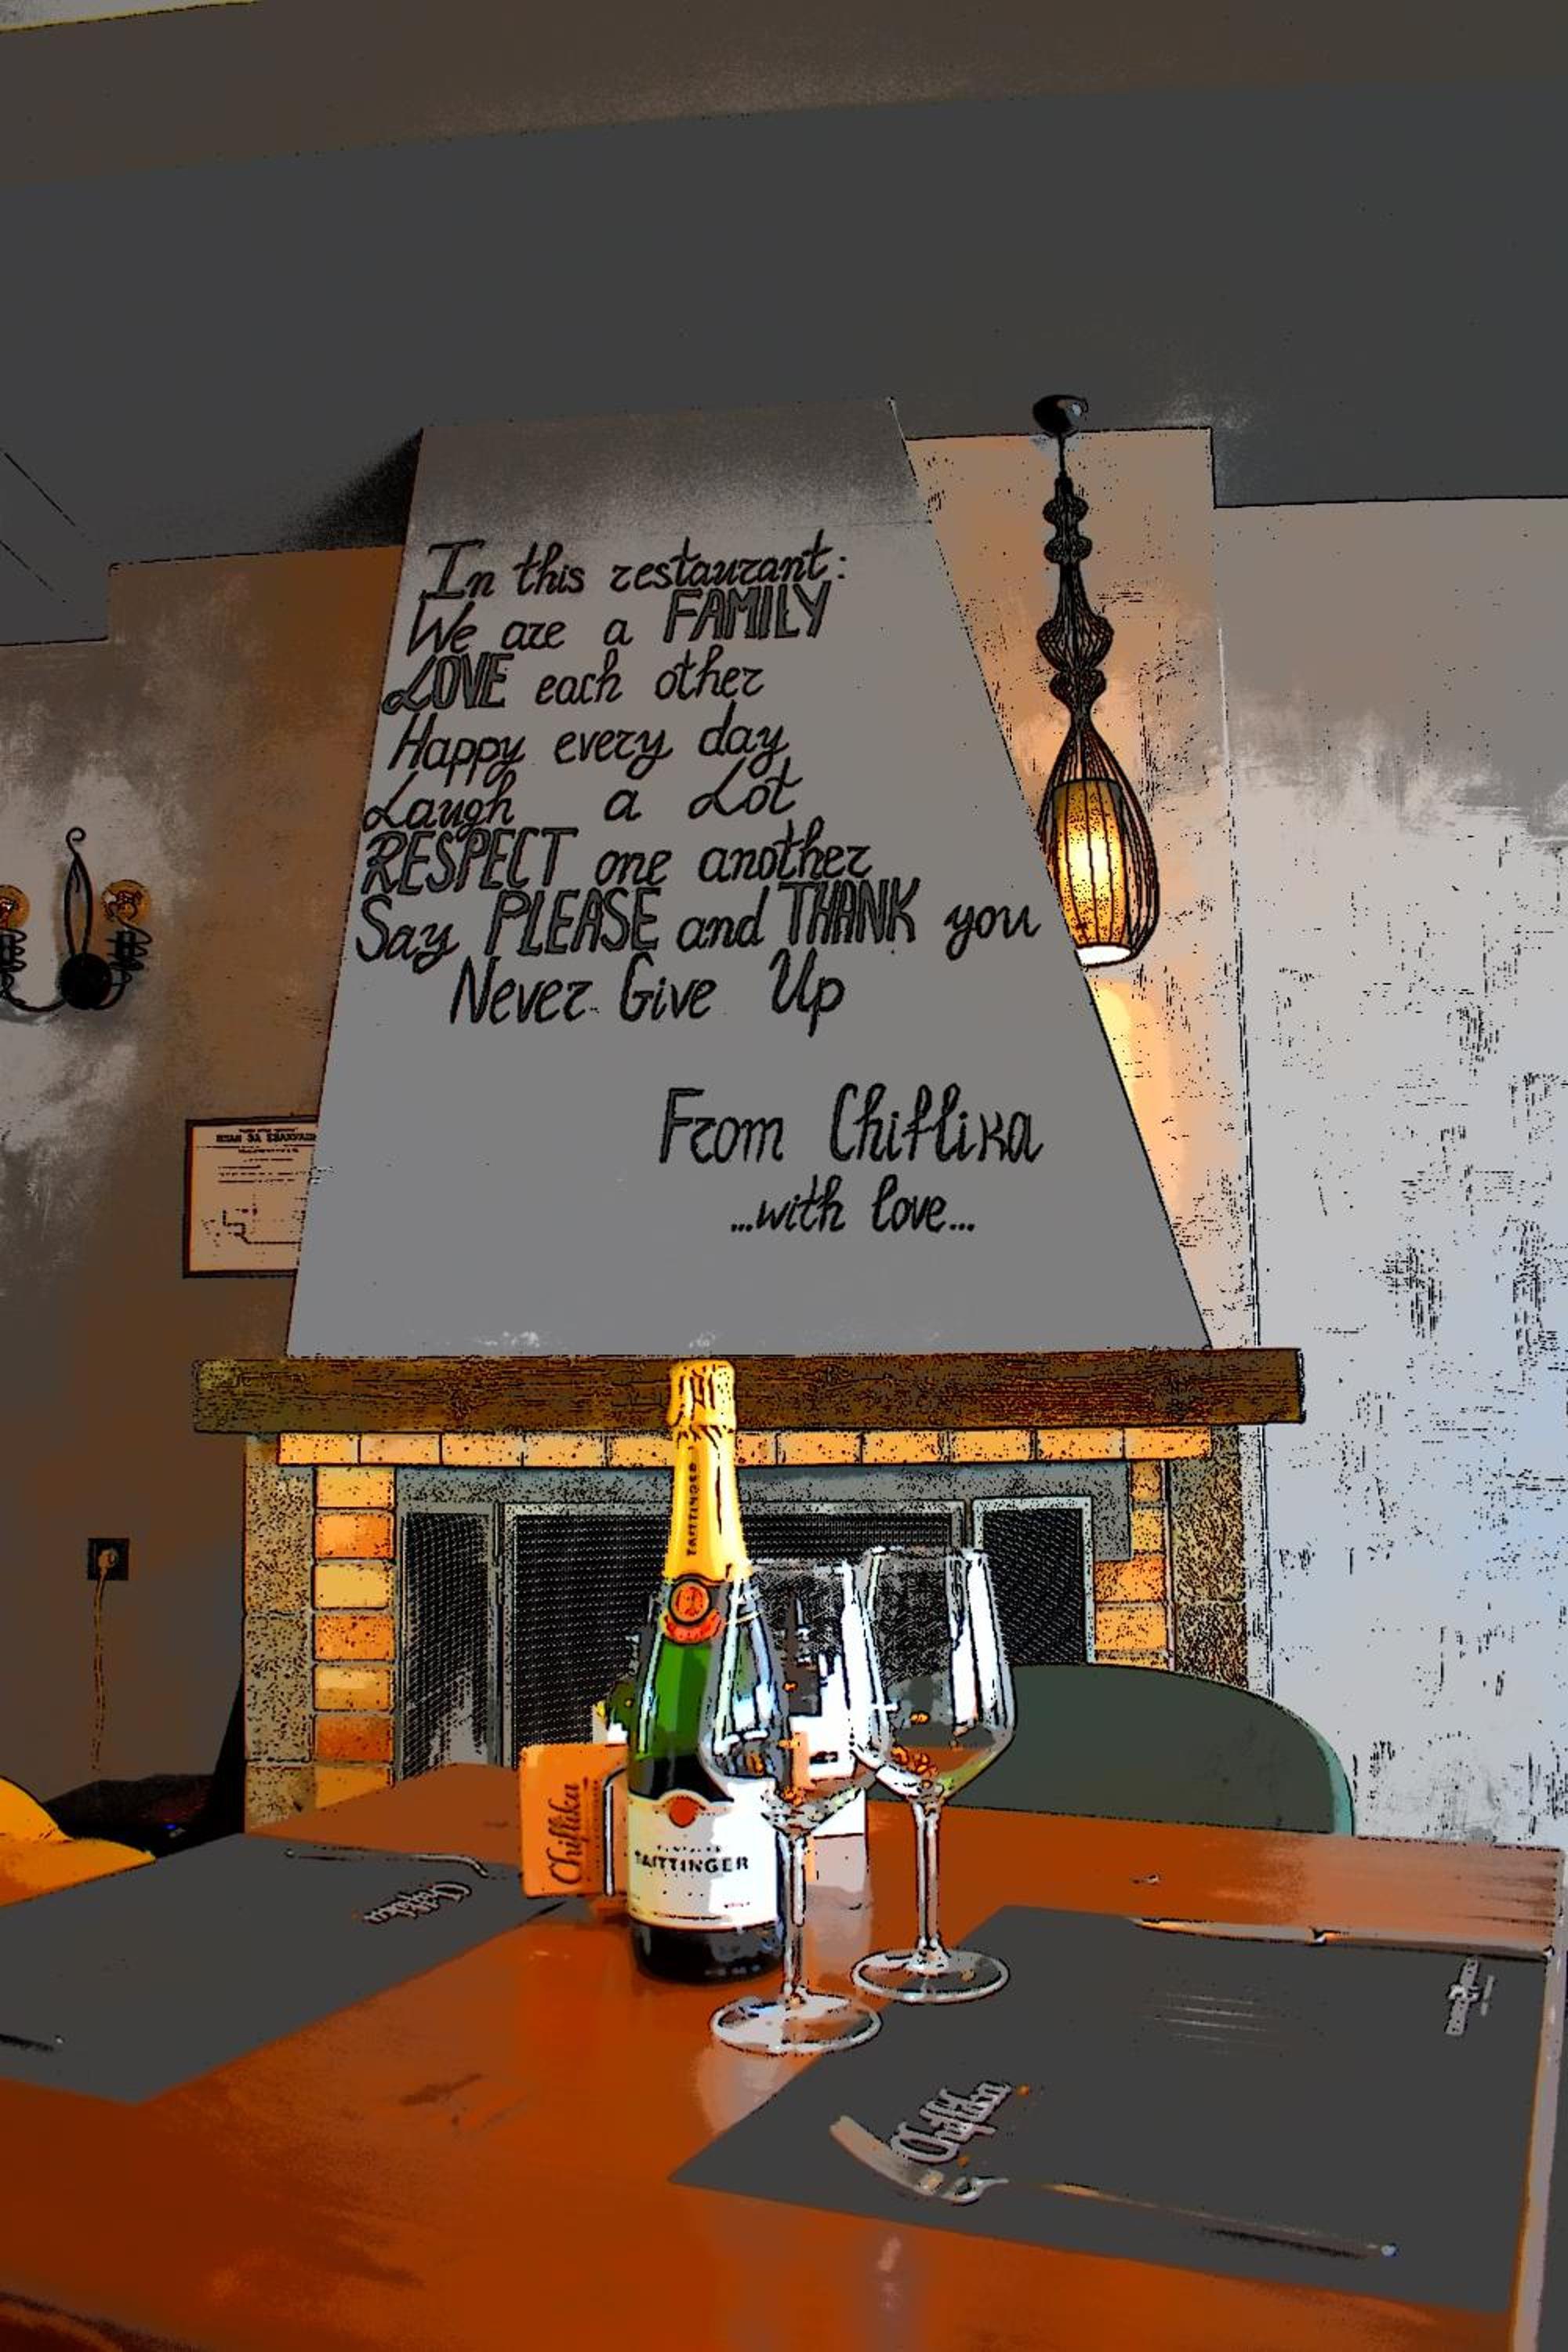 In this restaurant:
We are a FAMILY
LOVE each other
Happy every day
Laugh a Lot
RESPECT one another
Say PLEASE and THANK you
Never Give Up
From Chiflika
...with love...
ПЛАН ЗА ЕВАКУАЦИ
TAITTINGER
Chiflika
TAITTINGER
Chiflika
Chiflika